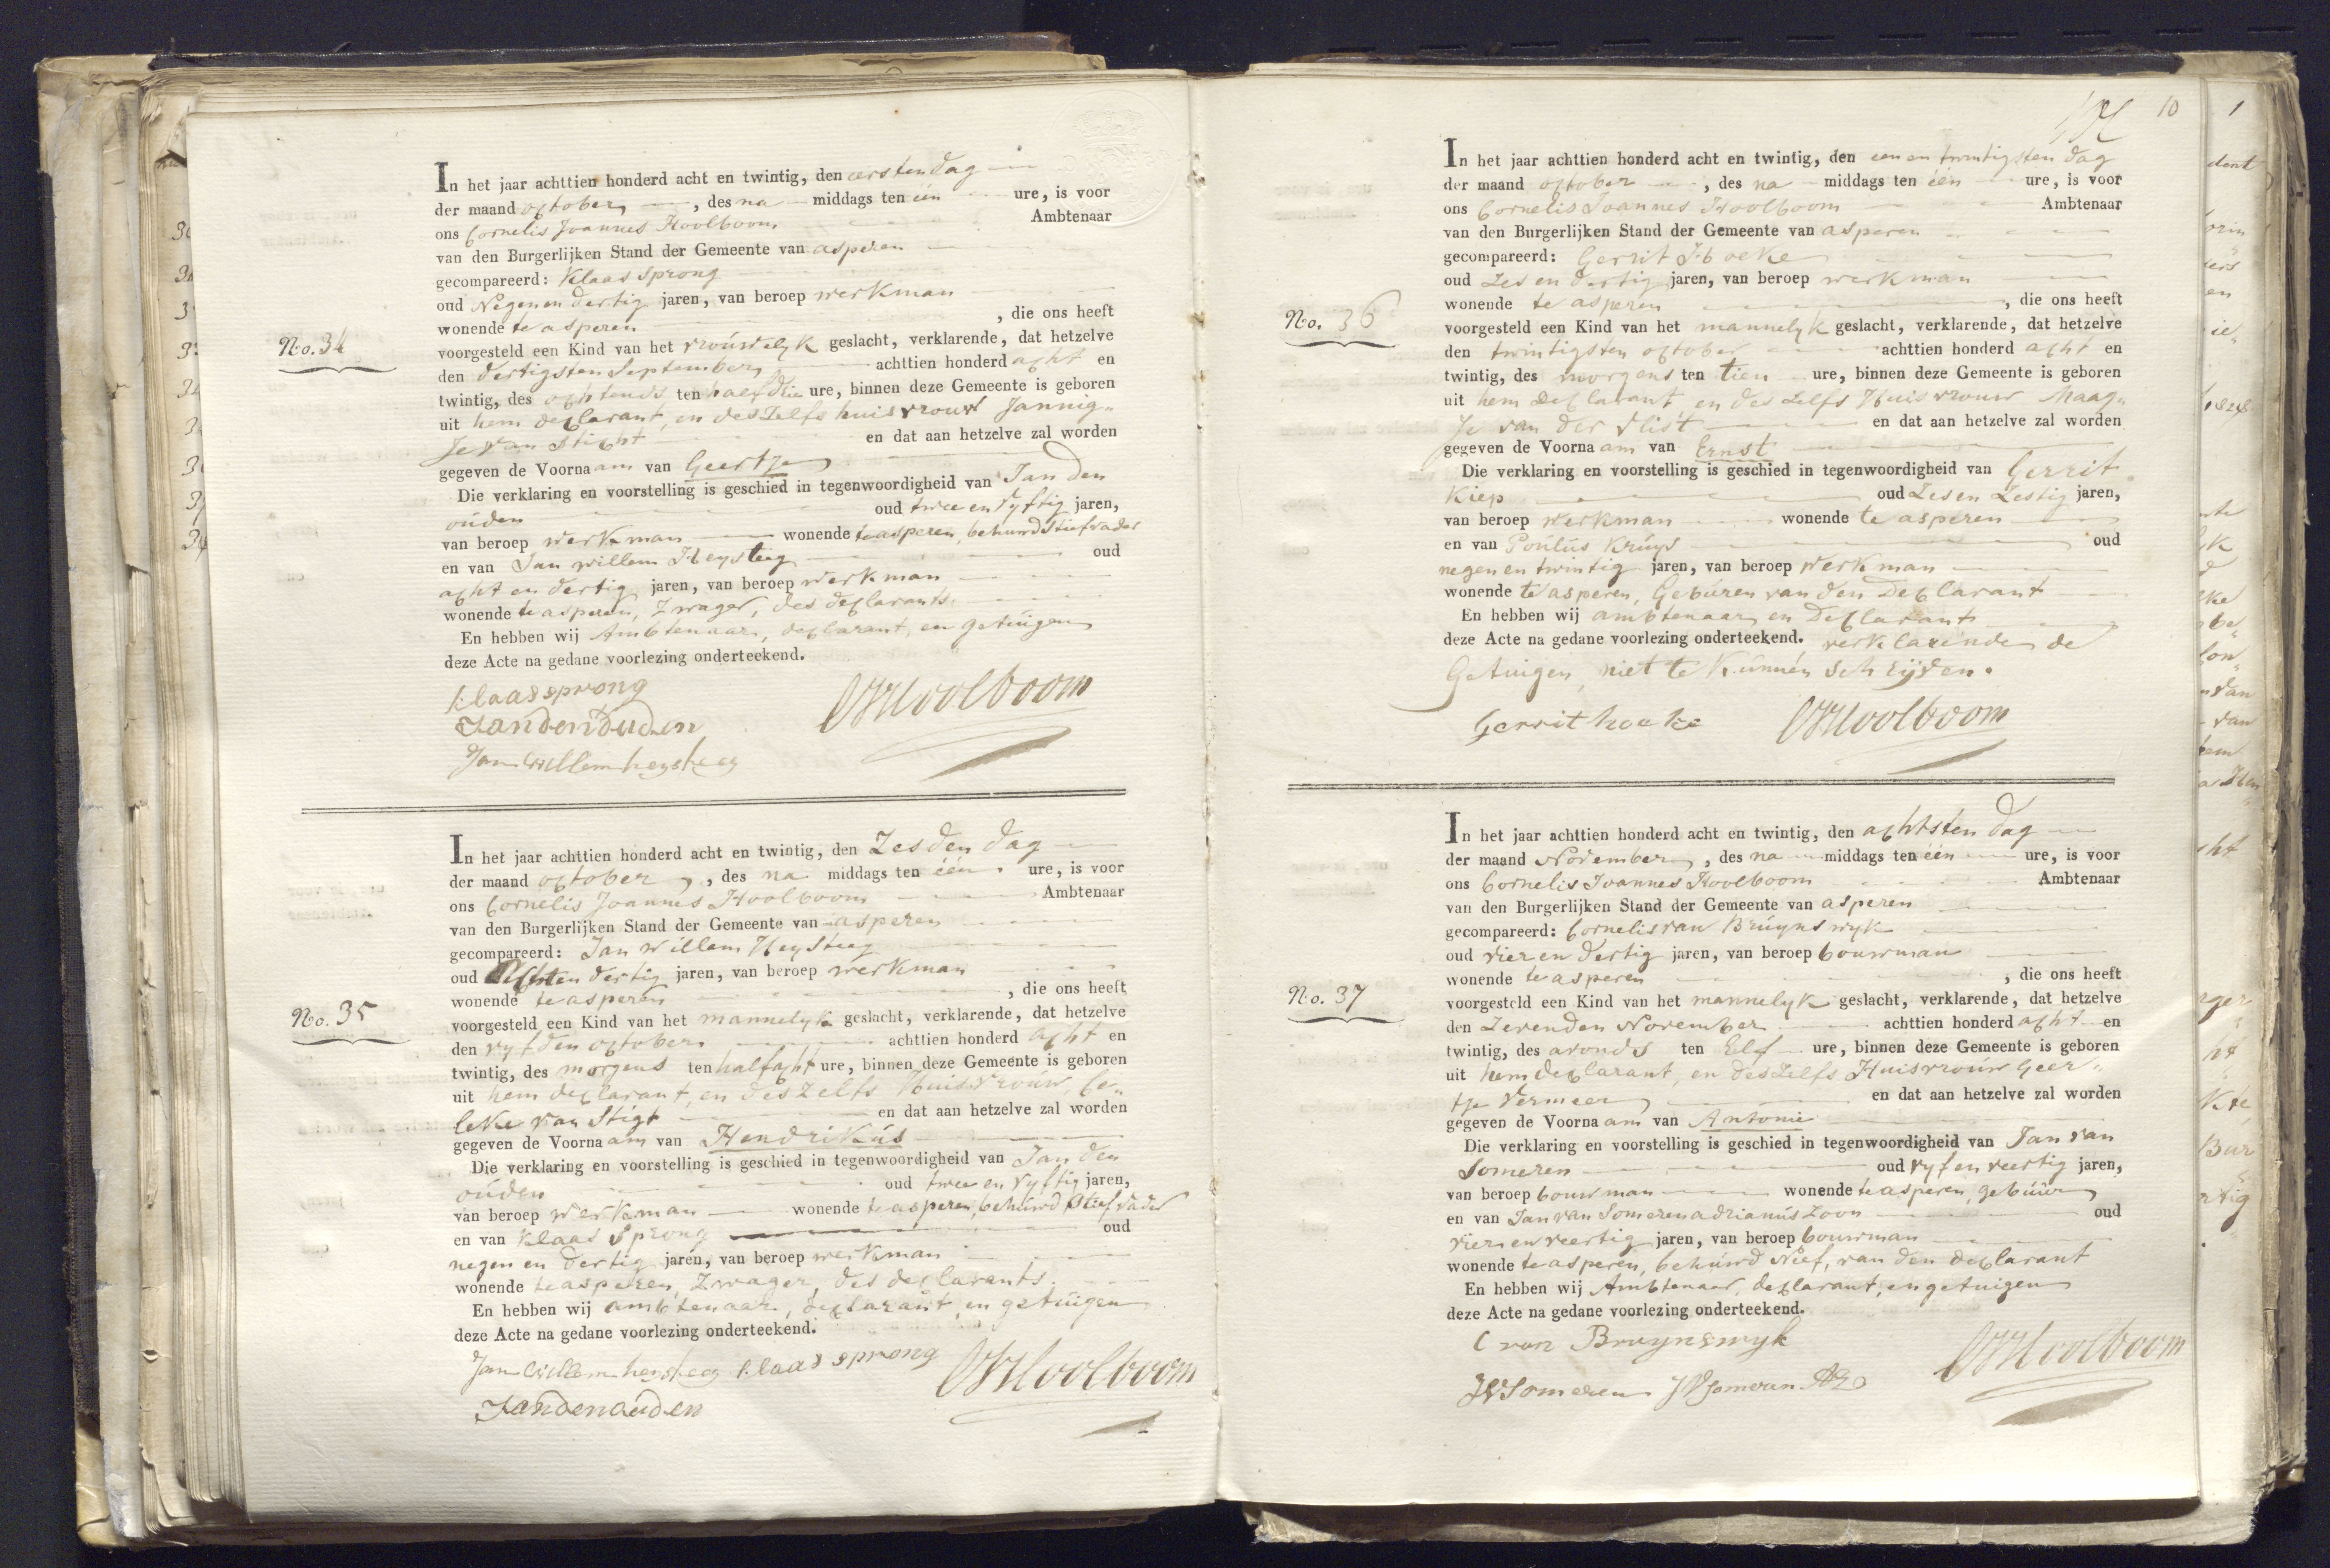 In het jaar achttien honderd acht en twintig, den eersten dag
der maand october, des na middags ten één ure, is voor
ons Cornelis Joannes Hoolboom Ambtenaar
van den Burgerlijken Stand der Gemeente van asperen
gecompareerd: Klaas Sprong
oud Negen en dertig jaren, van beroep werkman
wonende te asperen , die ons heeft
No. 34
voorgesteld een Kind van het vrouwelyk geslacht, verklarende, dat hetzelve
den dertigsten September achttien honderd acht en
twintig, des ochtends ten half drie ure, binnen deze Gemeente is geboren
uit hem declarant, en deszelfs huisvrouw Jannig„
Je van Sticht en dat aan hetzelve zal worden
gegeven de Voornaam van Geertje
Die verklaring en voorstelling is geschied in tegenwoordigheid van Jan den
oúden oud twee en vyftig jaren,
van beroep werkman wonende te asperen, behuwd Stiefvader
en van Jan willem Heysteeg oud
acht en dertig jaren, van beroep werkman
wonende te asperen, Zwager, des declarants.
En hebben wij Ambtenaar, declarant, en getúigen
deze Acte na gedane voorlezing onderteekend.
klaas sprong
Jan den ouden
CJHoolboom
Jan Willem heysteeg
In het jaar achttien honderd acht en twintig, den Zesden dag
der maand october, des na middags ten één ure, is voor
ons Cornelis Joannes Hoolboom Ambtenaar
van den Burgerlijken Stand der Gemeente van asperen
gecompareerd: Jan willem Heysteeg
oud Achten dertig jaren, van beroep werkman
wonende te asperen , die ons heeft
No. 35
voorgesteld een Kind van het mannelyk geslacht, verklarende, dat hetzelve
den vyfden october achttien honderd acht en
twintig, des morgens ten half acht ure, binnen deze Gemeente is geboren
uit hem declarant, en deszelfs Huisvroúw, Ce„
leke van Stigt en dat aan hetzelve zal worden
gegeven de Voornaam van Hendrikús
Die verklaring en voorstelling is geschied in tegenwoordigheid van Jan den
oúden oud twee en vyftig jaren,
van beroep werkman wonende te asperen, behúwd Stiefvader
en van Klaas Sprong oud
negen en dertig jaren, van beroep werkman
wonende te asperen, Zwager, des declarants.
En hebben wij ambtenaar, declarant, en getúigen
deze Acte na gedane voorlezing onderteekend.
Jan Willem heysteeg klaas sprong CJHoolboom
Jan den ouden
10
In het jaar achttien honderd acht en twintig, den een en twintigsten dag
der maand october, des na middags ten één ure, is voor
ons Cornelis Joannes Hoolboom Ambtenaar
van den Burgerlijken Stand der Gemeente van asperen
gecompareerd: Gerrit Hoeke
oud Zes en dertig jaren, van beroep werkman
wonende te asperen , die ons heeft
No. 36
voorgesteld een Kind van het mannelyk geslacht, verklarende, dat hetzelve
den twintigsten october achttien honderd acht en
twintig, des morgens ten tien ure, binnen deze Gemeente is geboren
uit hem declarant, en deszelfs Huisvrouw Maag„
Je van der vlist en dat aan hetzelve zal worden
gegeven de Voornaam van Ernst
Die verklaring en voorstelling is geschied in tegenwoordigheid van Gerrit
Kiep oud Zes en Zestig jaren,
van beroep werkman wonende te asperen
en van Poúlús Krúys oud
negen en twintig jaren, van beroep werkman
wonende te asperen, Gebúren van den Declarant
En hebben wij ambtenaar, en Declarant
deze Acte na gedane voorlezing onderteekend. verklarende de
Getuigen, niet te Kúnnen schrijven.
Gerrit hoeke CJHoolboom
In het jaar achttien honderd acht en twintig, den achtsten dag
der maand November, des na middags ten één ure, is voor
ons Cornelis Joannes Hoolboom Ambtenaar
van den Burgerlijken Stand der Gemeente van asperen
gecompareerd: Cornelis van Brúynswyk
oud vier en dertig jaren, van beroep bouwman
wonende te asperen , die ons heeft
No. 37
voorgesteld een Kind van het mannelyk geslacht, verklarende, dat hetzelve
den Zevenden November achttien honderd acht en
twintig, des avonds ten Elf ure, binnen deze Gemeente is geboren
uit hem declarant, en deszelfs Huisvroúw Geer„
tje Vermeer en dat aan hetzelve zal worden
gegeven de Voornaam van Antonie
Die verklaring en voorstelling is geschied in tegenwoordigheid van Jan van
Someren oud vyf en veertig jaren,
van beroep bouwman wonende te asperen, gebúúr
en van Jan van Someren adrianús Zoon oud
vier en veertig jaren, van beroep bouwman
wonende te asperen, behúwd Neef, van den declarant
En hebben wij Ambtenaar, declarant, en getuigen
deze Acte na gedane voorlezing onderteekend.
C van Bruynswyk
CJHoolboom
JVSomeren JVSomeren AZ